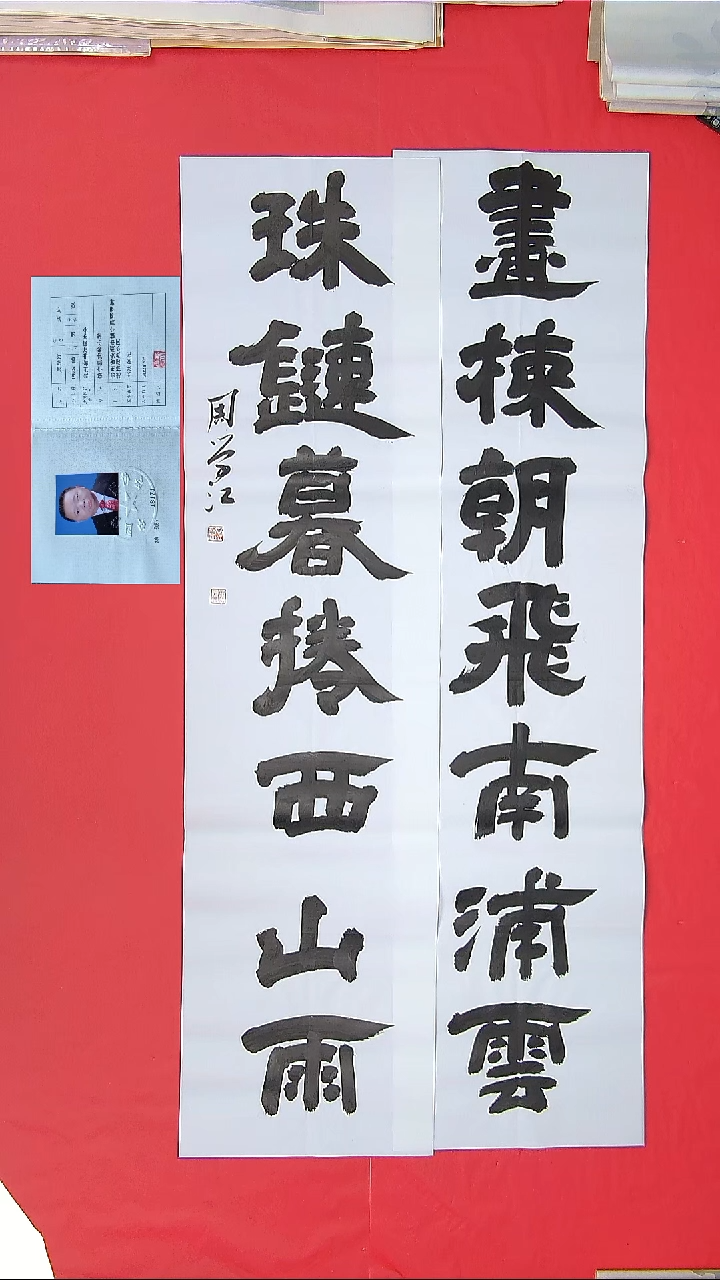 畫棟朝飛南浦雲
珠鏈暮捲西山雨
周 江